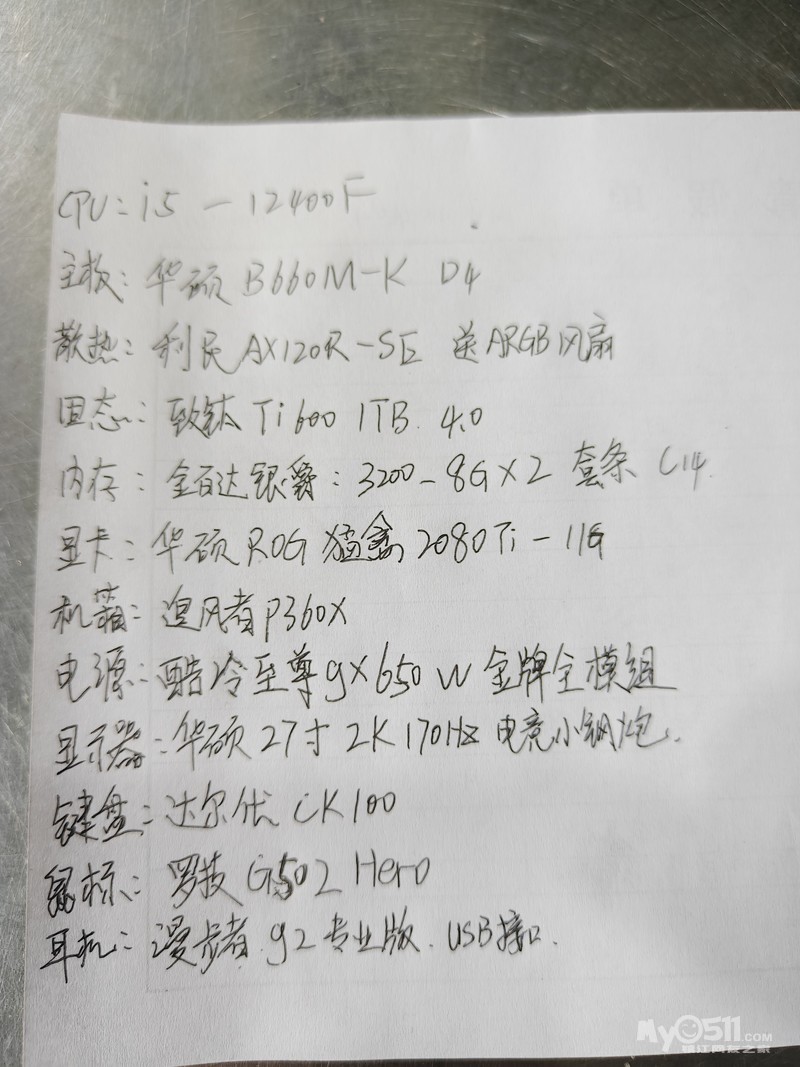 CPU：i5 — 12400F
主板：华硕 B660M-K D4
散热：利民 AX120R-SE 送ARGB风扇
固态：致钛 Ti600 1TB 4.0
内存：金百达银爵：3200-8G×2 套条 C14
显卡：华硕 ROG 猛禽 2080Ti-11G
机箱：追风者P360X
电源：酷冷至尊gx650W 金牌全模组
显示器：华硕 27寸 2K 170Hz 电竞小钢炮.
键盘：达尔优 CK100
鼠标：罗技 G502 Hero
耳机：漫步者 g2 专业版. USB接口.
My0511.COM
镇江网友之家